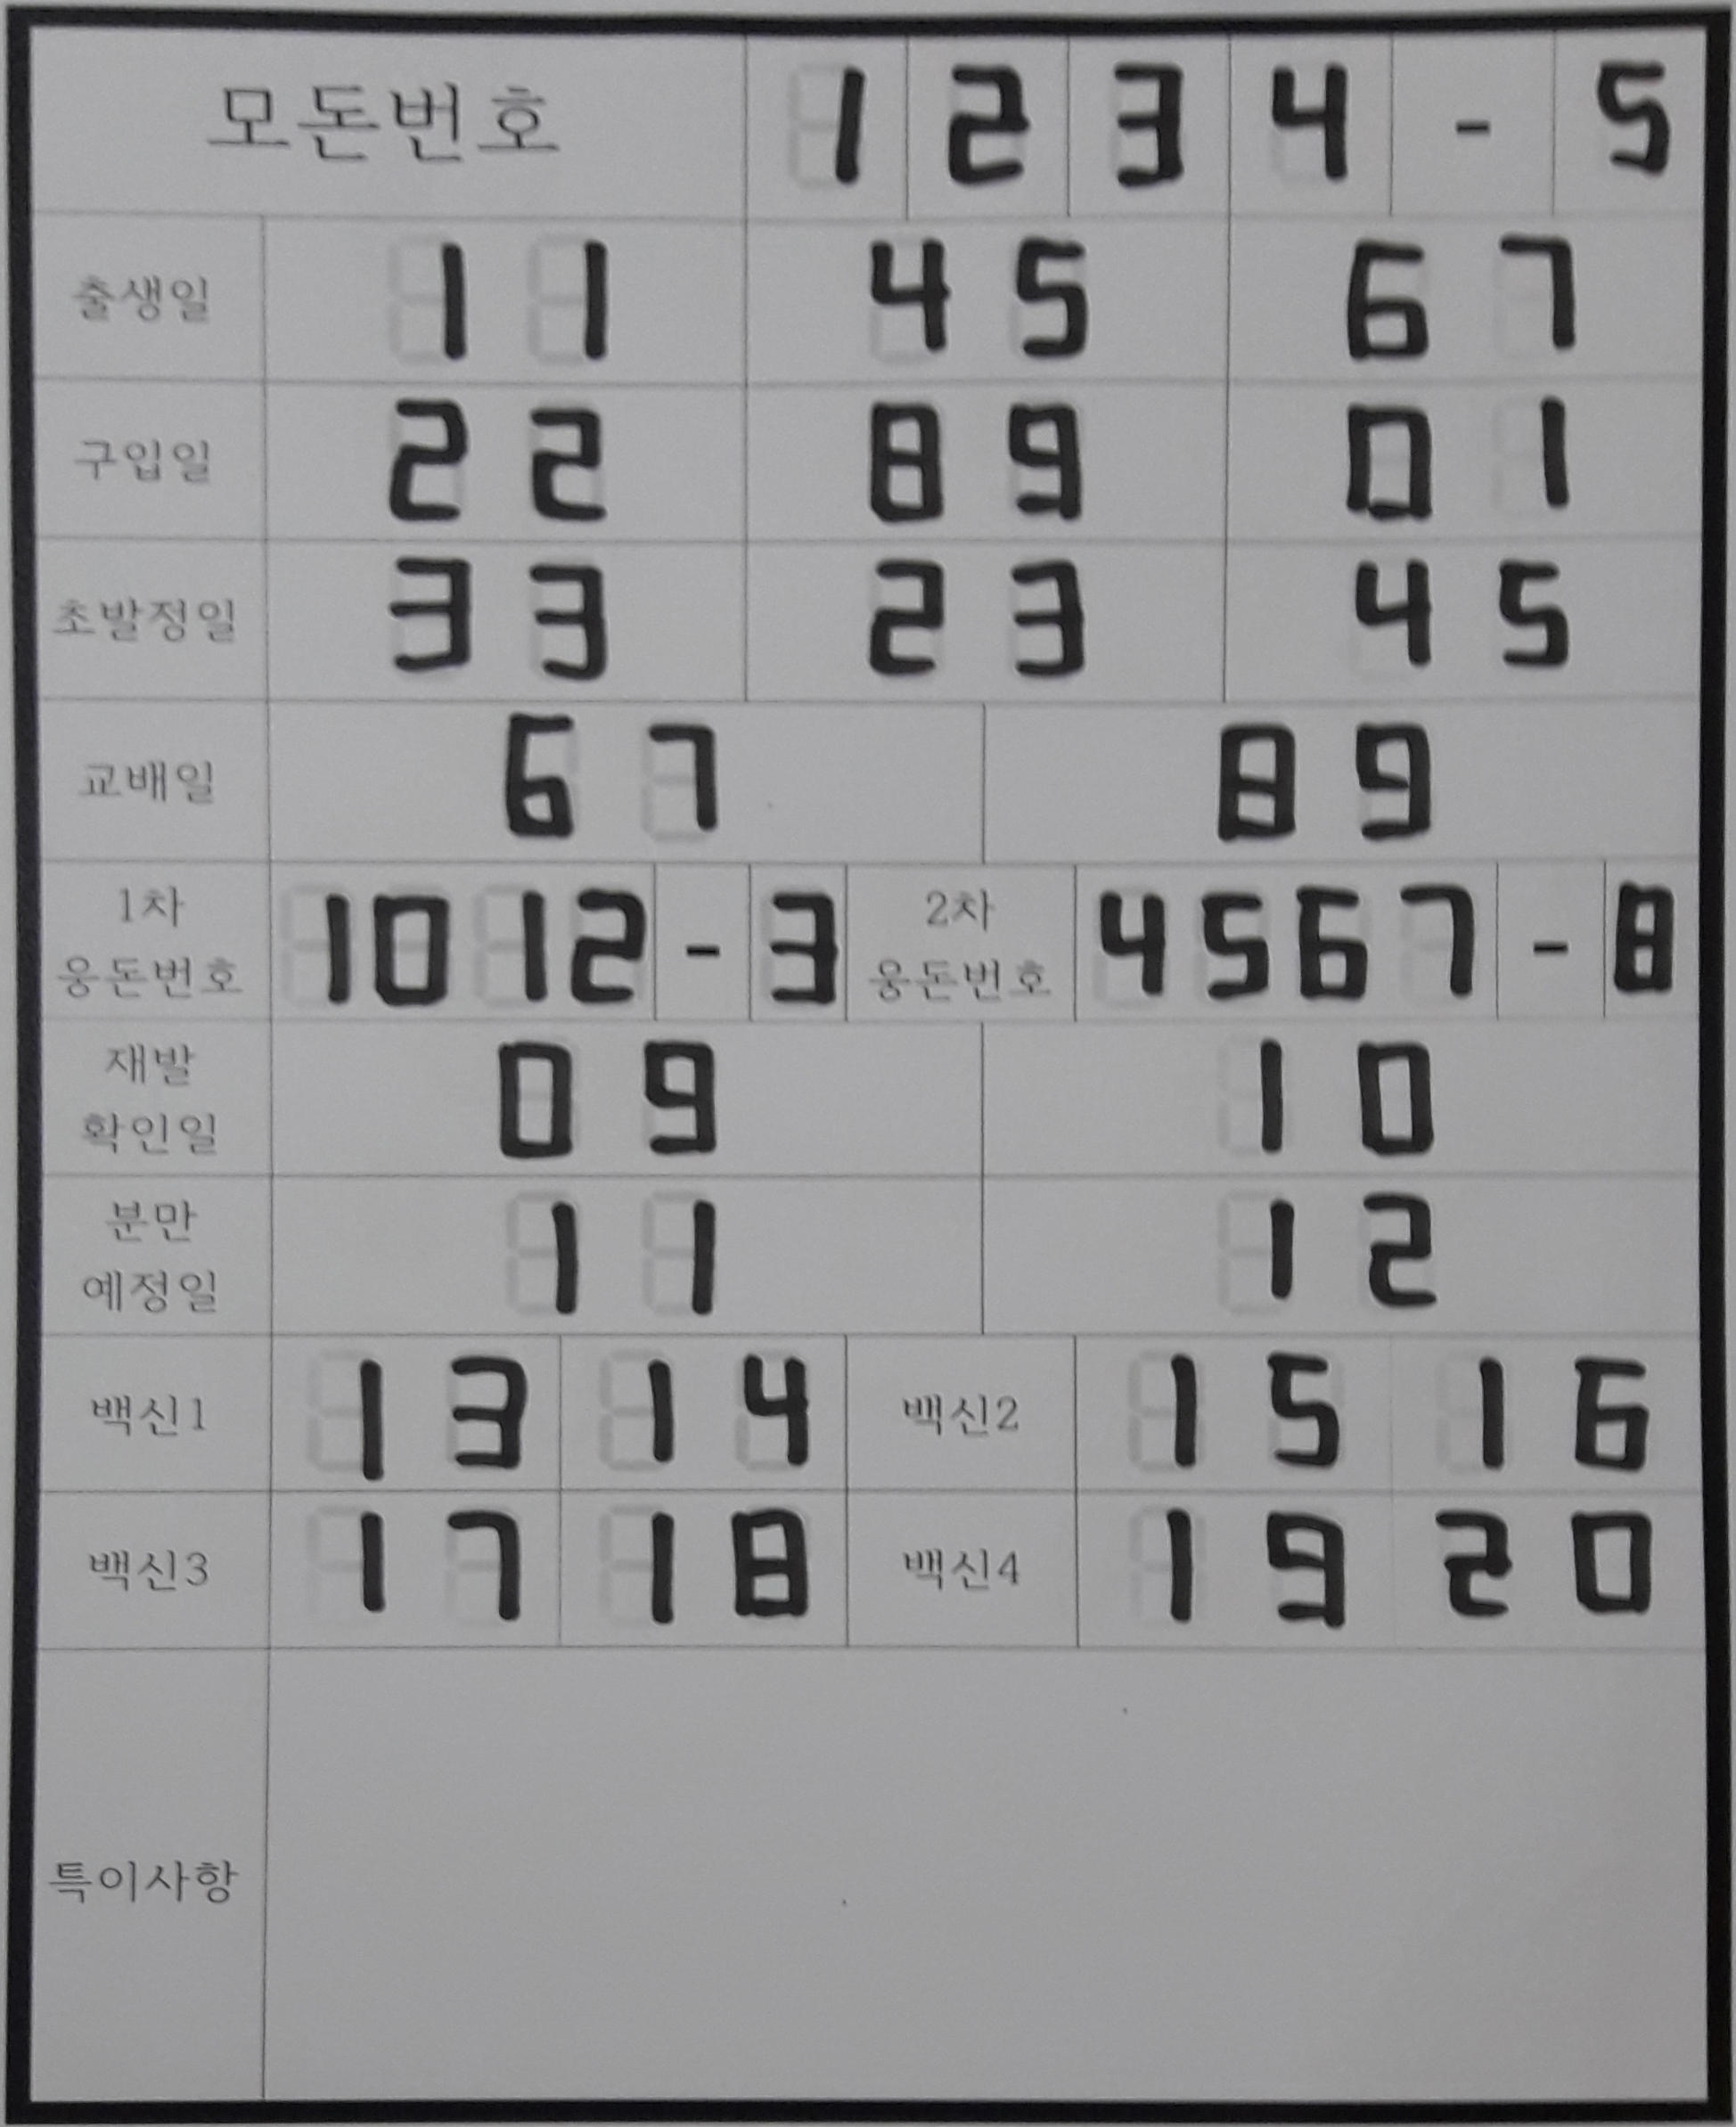 모돈번호 1 2 3 4 - 5
출생일 1 1 4 5 6 7
구입일 2 2 8 9 0 1
초발정일 3 3 2 3 4 5
교배일 6 7 8 9
1차 웅돈번호 1 0 1 2 - 3 2차 웅돈번호 4 5 6 7 - 8
재발 확인일 0 9 1 0
분만 예정일 1 1 1 2
백신1 1 3 1 4 백신2 1 5 1 6
백신3 1 7 1 8 백신4 1 9 2 0
특이사항